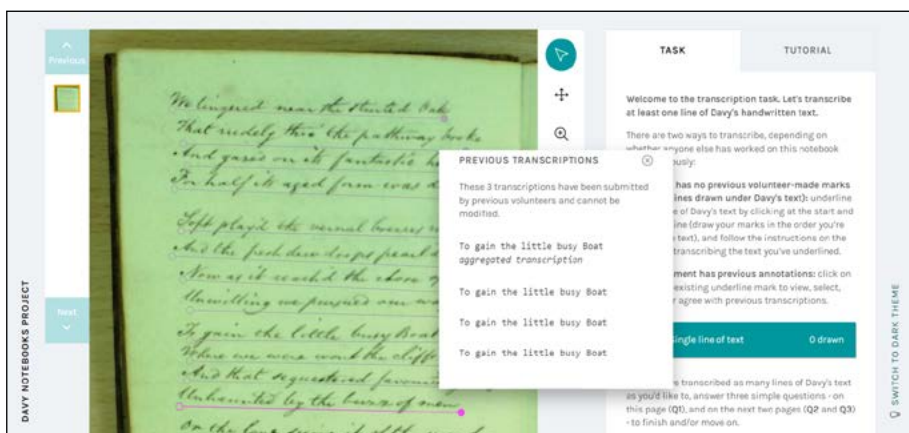 Previous
Next
DAVY NOTEBOOKS PROJECT
We lingered near the stunted Oak
That rudely thro' the pathway
And gazed on its fantastic
For half its aged form was
Soft play'd the vernal breezes
And the fresh dew drops pearl'd
Now as it reach'd the shore
Unwilling we pursued our
To gain the little busy Boat
Where we were wont the cliffs
And that sequestered
Unhaunted by the buzz of men
On the
PREVIOUS TRANSCRIPTIONS
These 3 transcriptions have been submitted
by previous volunteers and cannot be
modified.
To gain the little busy Boat
aggregated transcription
To gain the little busy Boat
To gain the little busy Boat
To gain the little busy Boat
TASK
TUTORIAL
Welcome to the transcription task. Let's transcribe
at least one line of Davy's handwritten text.
There are two ways to transcribe, depending on
whether anyone else has worked on this notebook
ously:
has no previous volunteer-made marks
ines drawn under Davy's text): underline
e of Davy's text by clicking at the start and
ine (draw your marks in the order you're
text), and follow the instructions on the
transcribing the text you've underlined.
ment has previous annotations: click on
existing underline mark to view, select,
agree with previous transcriptions.
ingle line of text
0 drawn
e transcribed as many lines of Davy's text
as you'd like to, answer three simple questions - on
this page (Q1), and on the next two pages (Q2 and Q3)
- to finish and/or move on.
SWITCH TO DARK THEME